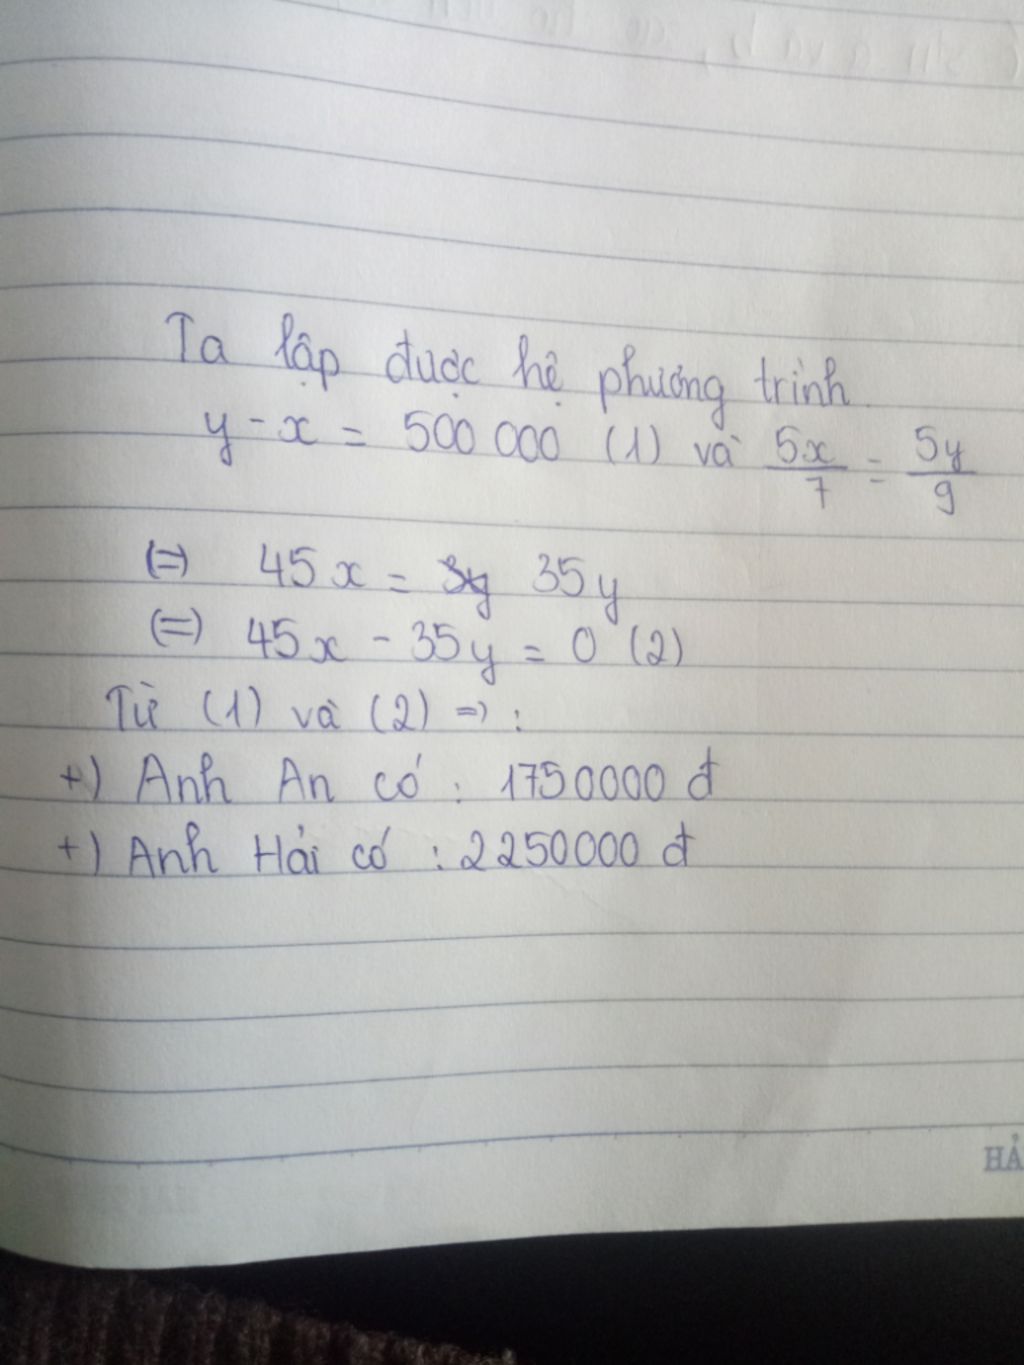 Ta lập được hệ phương trình
y - x = 500 000 (1) và 5x/7 = 5y/9
(=) 45x = 35y
(=) 45x - 35y = 0 (2)
Từ (1) và (2) => :
+) Anh An có : 1750000 đ
+) Anh Hải có : 2250000 đ
HẢ